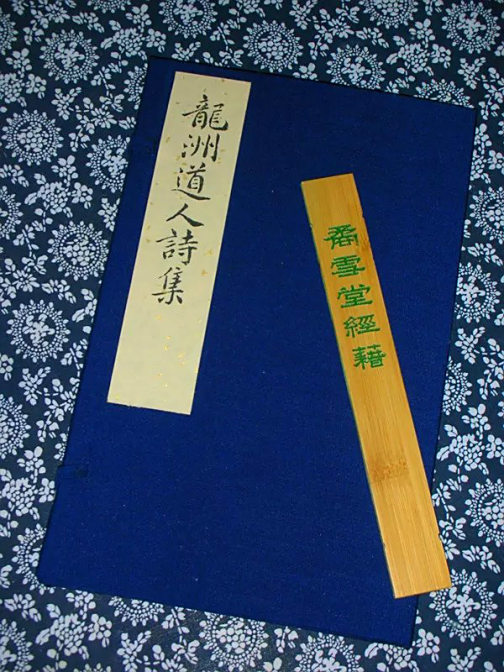 龍洲道人詩集
喬雪堂經藉